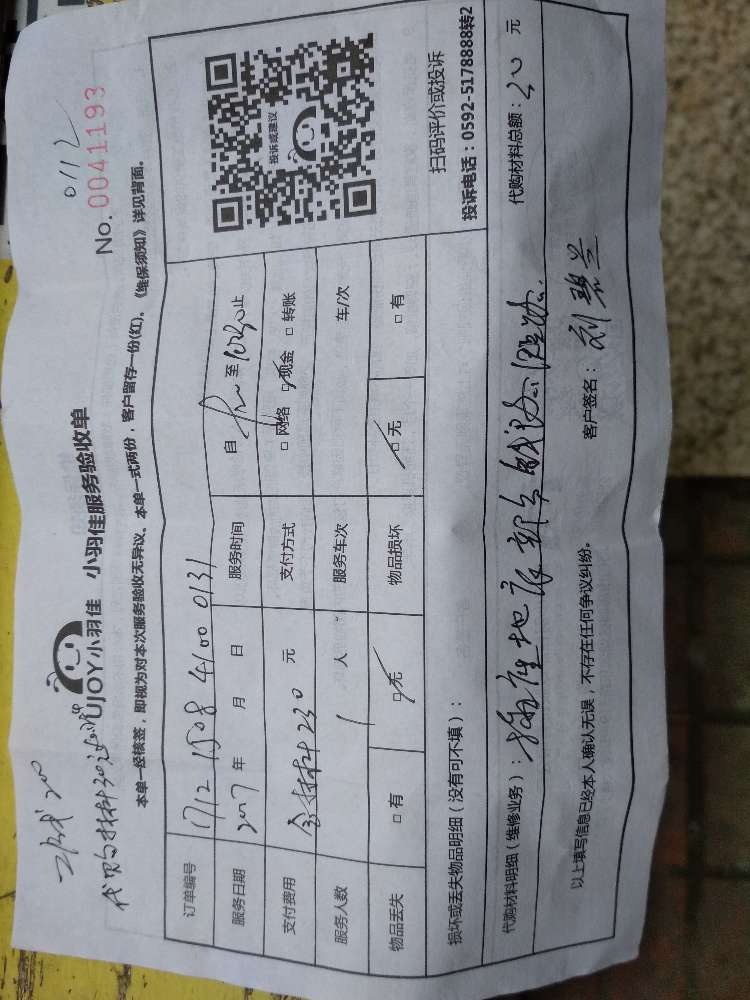 0112
No. 0041193
UJOY小羽佳 小羽佳服务验收单
代购材料30
本单一经核签，即视为对本次服务验收无异议。本单一式两份，客户留存一份(红)。《维保须知》详见背面。
订单编号 1712 1508 4100 0131
服务日期 2017 年 月 日 服务时间 自 至 10:30 止
支付费用 含材料230 元 支付方式 □网络 □现金 □转账
服务人数 1 人 服务车次 车/次
物品丢失 □有 □无 物品损坏 □无 □有
投诉或建议
扫码评价或投诉
投诉电话：0592-5178888转2
损坏或丢失物品明细（没有可不填）：
代购材料明细（维修业务）： 代购材料总额： 30 元
以上填写信息已经本人确认无误，不存在任何争议纠纷。 客户签名： 刘碧兰